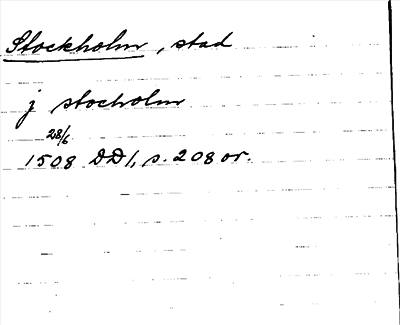 Stockholm, stad
j stocholm
28/6
1508 DD1, s. 208 or.